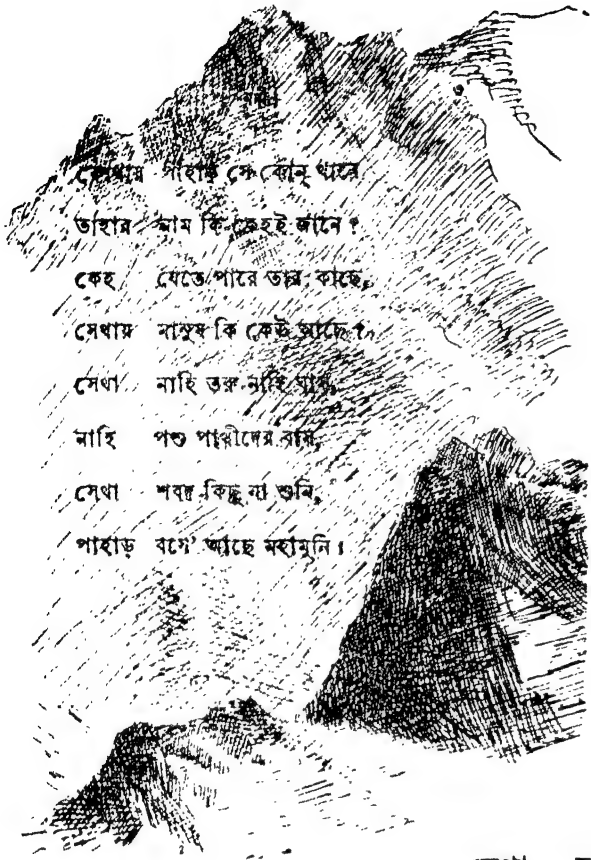 কোথায় পাহাড় সে কোন্ খানে
তাহার নাম কি কেহই জানে?
কেহ যেতে পারে তার কাছে,
সেথায় মানুষ কি কেউ আছে?
সেথা নাহি তরু নাহি ঘাস,
নাহি পশু পাখীদের বাস,
সেথা শবদ কিছু না শুনি,
পাহাড় বসে' আছে মহামুনি।